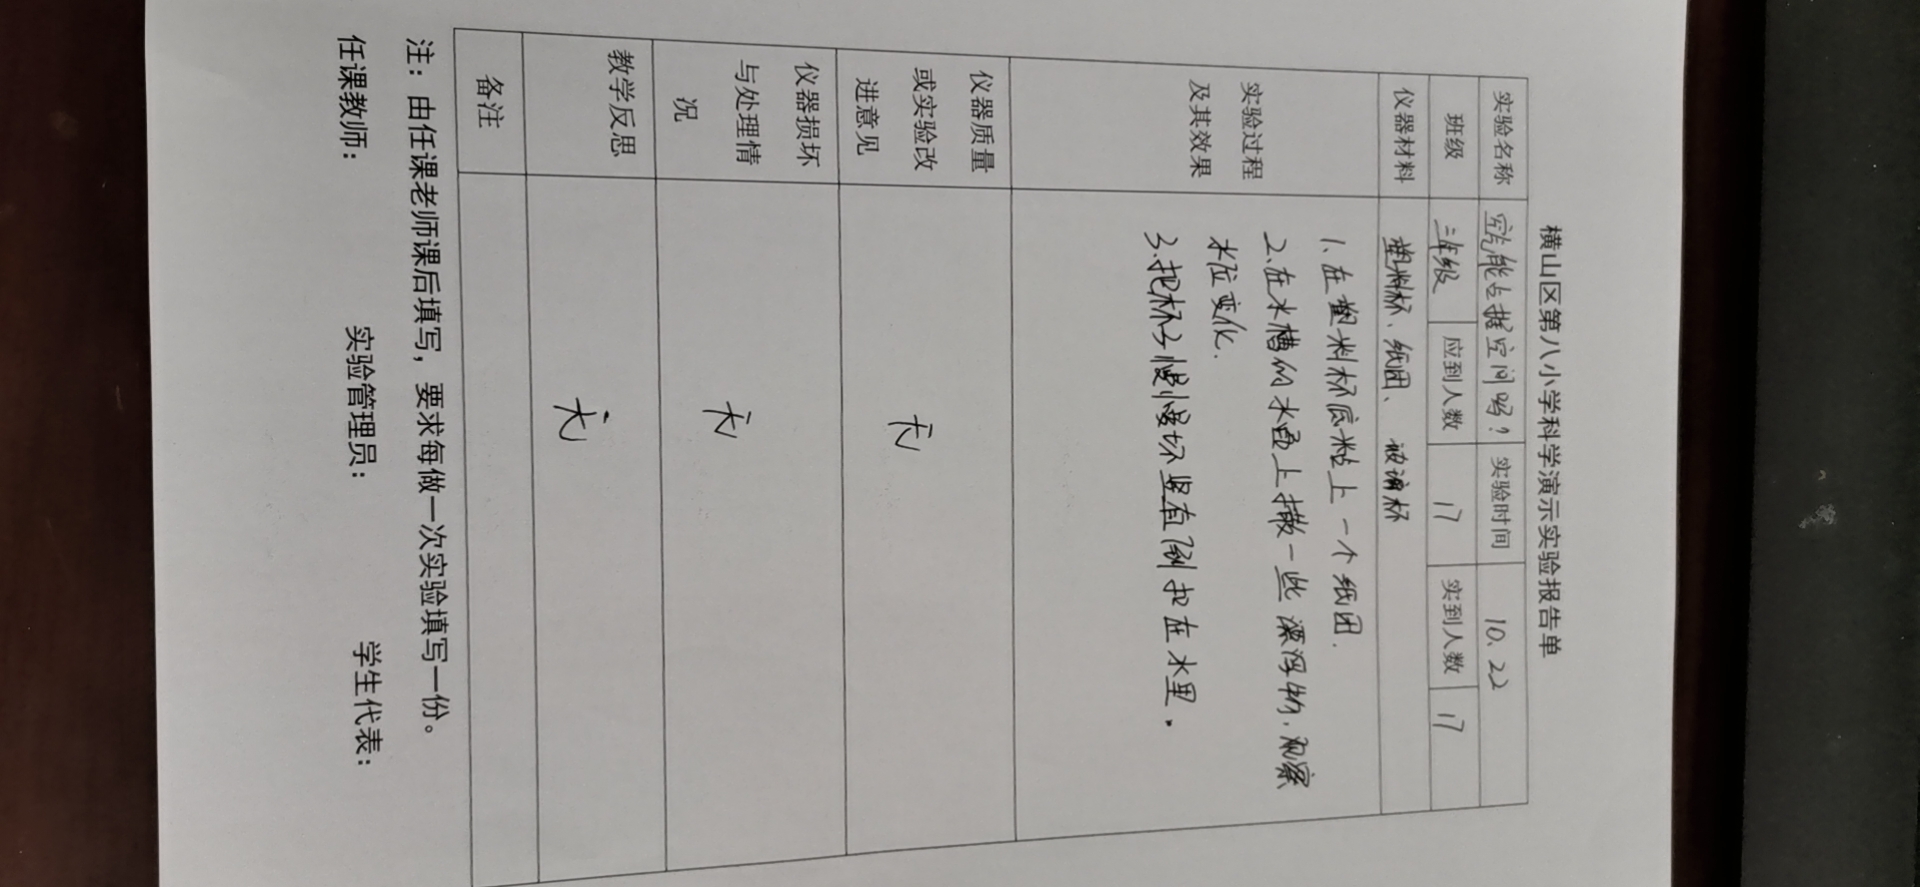 横山区第八小学科学演示实验报告单
实验名称 空气能占据空间吗？ 实验时间 10.22
班级 三年级 应到人数 17 实到人数 17
仪器材料 塑料杯、纸团、玻璃杯
实验过程
及其效果
1、在塑料杯底粘上一个纸团.
2、在水槽的水面上撒一些漂浮物，观察
水位变化.
3、把杯子慢慢竖直倒扣在水里.
仪器质量
或实验改
进意见
无
仪器损坏
与处理情
况
无
教学反思
无
备注
注：由任课老师课后填写，要求每做一次实验填写一份。
任课教师： 实验管理员： 学生代表：